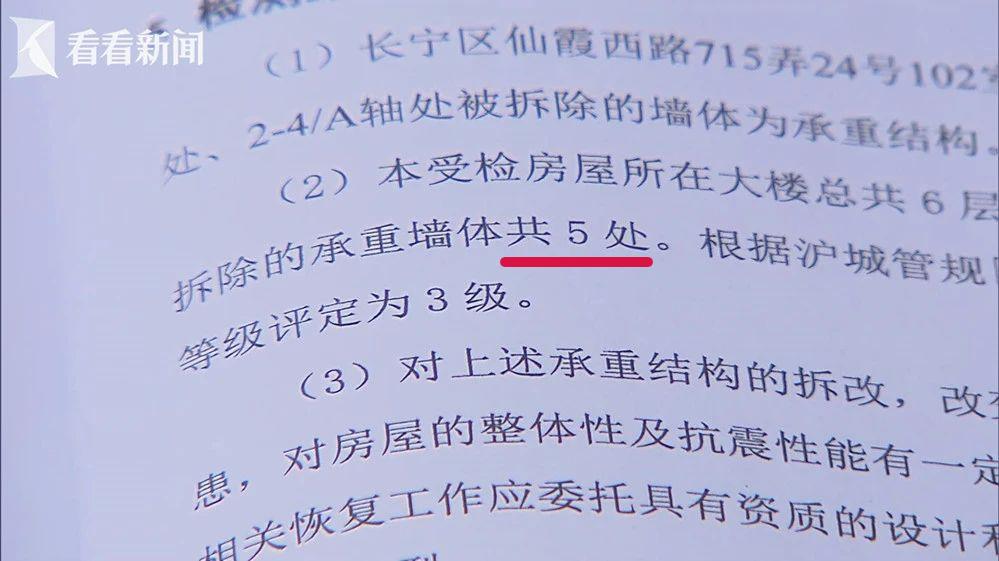 看看新闻
检测
（1）长宁区仙霞西路715弄24号102室
处、2-4/A轴处被拆除的墙体为承重结构。
（2）本受检房屋所在大楼总共 6 层
拆除的承重墙体共 5 处。根据沪城管规
等级评定为 3 级。
（3）对上述承重结构的拆改，改变
患，对房屋的整体性及抗震性能有一定
相关恢复工作应委托具有资质的设计和